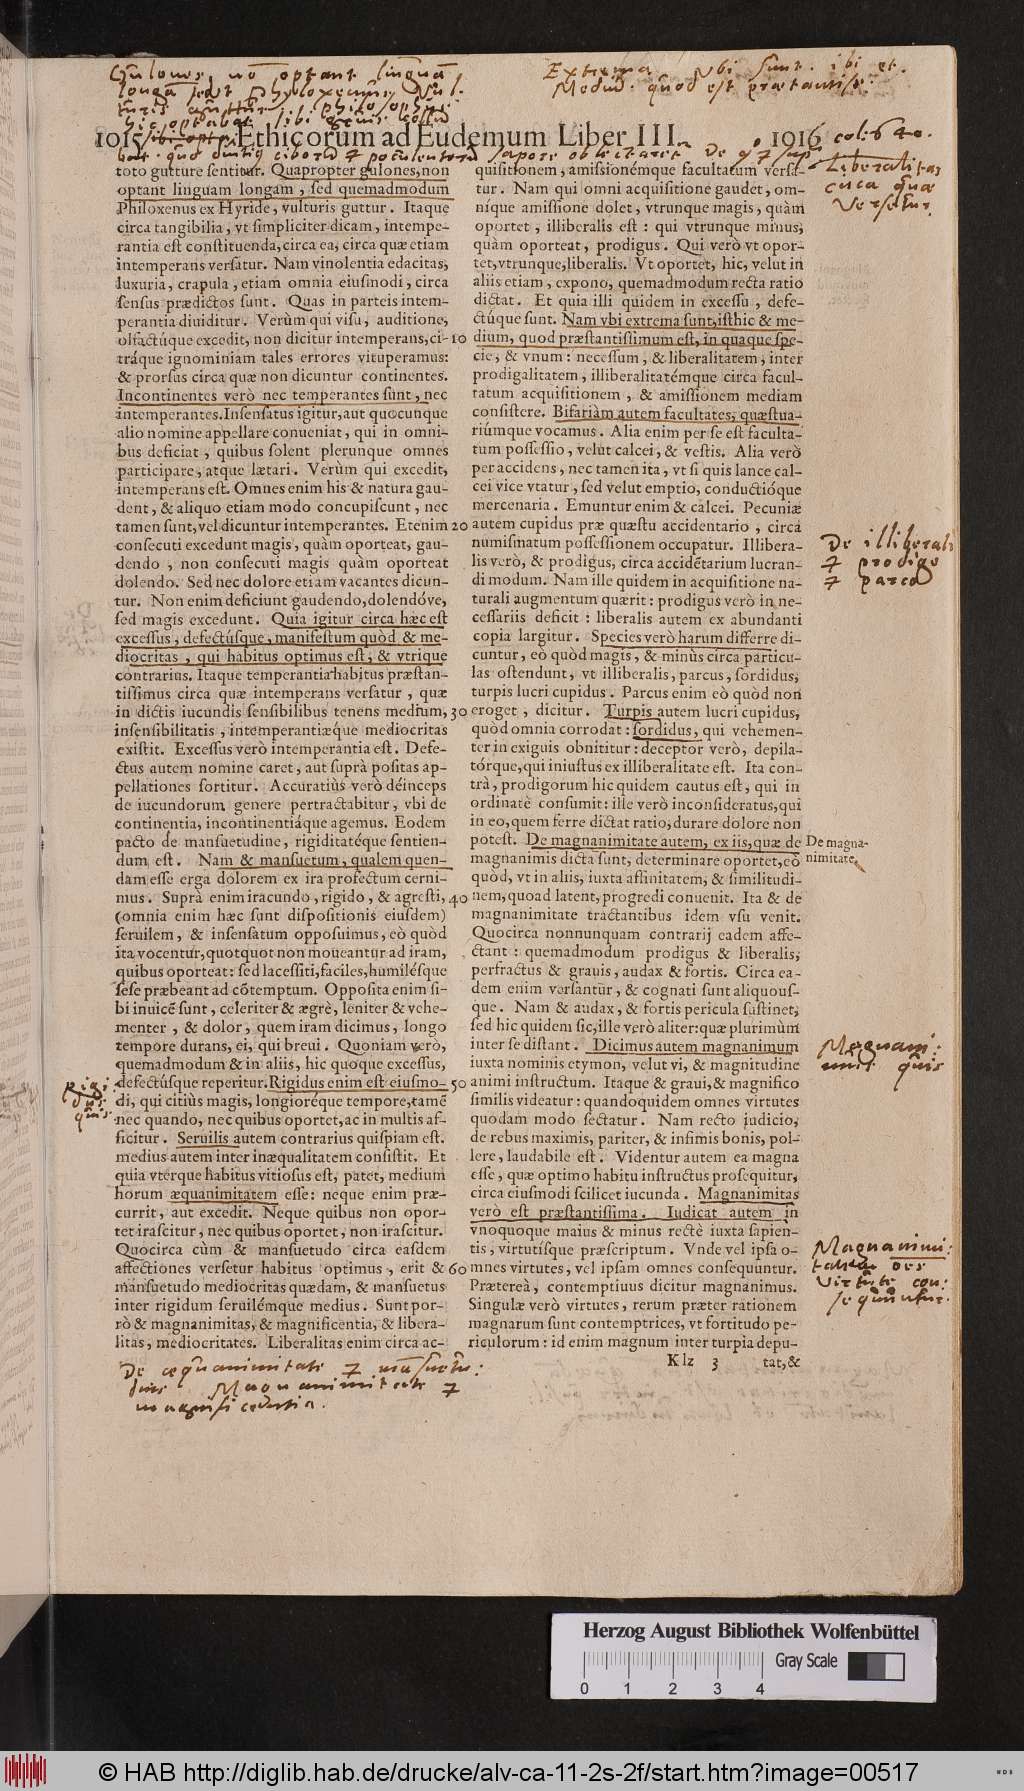 Extrema Vbi sunt. ibi et.
Medium. quod est præstantiss:
1015 Ethicorum ad Eudemum Liber III. 1016
toto gutture sentitur. Quapropter gulones, non
optant linguam longam, sed quemadmodum
Philoxenus ex Hyride, vulturis guttur. Itaque
circa tangibilia, vt simpliciter dicam, intempe-
rantia est constituenda, circa ea, circa quæ etiam
intemperans versatur. Nam vinolentia edacitas,
luxuria, crapula, etiam omnia eiusmodi, circa
sensus prædictos sunt. Quas in parteis intem-
perantia diuiditur. Verùm qui visu, auditione,
olfactúque excedit, non dicitur intemperans, ci-
tráque ignominiam tales errores vituperamus:
& prorsus circa quæ non dicuntur continentes.
Incontinentes verò nec temperantes sunt, nec
intemperantes. Insensatus igitur, aut quocunque
alio nomine appellare conueniat, qui in omni-
bus deficiat, quibus solent plerunque omnes
participare, atque lætari. Verùm qui excedit,
intemperans est. Omnes enim his & natura gau-
dent, & aliquo etiam modo concupiscunt, nec
tamen sunt, vel dicuntur intemperantes. Etenim
consecuti excedunt magis, quàm oporteat, gau-
dendo, non consecuti magis quàm oporteat
dolendo. Sed nec dolore etiam vacantes dicun-
tur. Non enim deficiunt gaudendo, dolendóve,
sed magis excedunt. Quia igitur circa hæc est
excessus, defectúsque, manifestum quòd & me-
diocritas, qui habitus optimus est, & vtrique
contrarius. Itaque temperantia habitus præstan-
tissimus circa quæ intemperans versatur, quæ
in dictis iucundis sensibilibus tenens medium,
insensibilitatis, intemperantiæque mediocritas
existit. Excessus verò intemperantia est. Defe-
ctus autem nomine caret, aut suprà positas ap-
pellationes sortitur. Accuratiùs verò déinceps
de iucundorum genere pertractabitur, vbi de
continentia, incontinentiáque agemus. Eodem
pacto de mansuetudine, rigiditatéque sentien-
dum est. Nam & mansuetum, qualem quen-
dam esse erga dolorem ex ira profectum cerni-
mus. Suprà enim iracundo, rigido, & agresti,
(omnia enim hæc sunt dispositionis eiusdem)
seruilem, & insensatum opposuimus, eò quòd
ita vocentur, quotquot non moueantur ad iram,
quibus oporteat: sed lacessiti, faciles, humilésque
sese præbeant ad cõtemptum. Opposita enim si-
bi inuicẽ sunt, celeriter & ægrè, leniter & vehe-
menter, & dolor, quem iram dicimus, longo
tempore durans, ei, qui breui. Quoniam verò,
quemadmodum & in aliis, hic quoque excessus,
defectúsque reperitur. Rigidus enim est eiusmo-
di, qui citiùs magis, longioréque tempore, tamẽ
nec quando, nec quibus oportet, ac in multis af-
ficitur. Seruilis autem contrarius quispiam est.
medius autem inter inæqualitatem consistit. Et
quia vterque habitus vitiosus est, patet, medium
horum æquanimitatem esse: neque enim præ-
currit, aut excedit. Neque quibus non opor-
tet irascitur, nec quibus oportet, non irascitur.
Quocirca cùm & mansuetudo circa easdem
affectiones versetur habitus optimus, erit &
mansuetudo mediocritas quædam, & mansuetus
inter rigidum seruilémque medius. Sunt por-
rò & magnanimitas, & magnificentia, & libera-
litas, mediocritates. Liberalitas enim circa ac-
10
20
30
40
50
60
quisitionem, amissionémque facultatum versa-
tur. Nam qui omni acquisitione gaudet, om-
níque amissione dolet, vtrunque magis, quàm
oportet, illiberalis est: qui vtrunque minus,
quàm oporteat, prodigus. Qui verò vt opor-
tet, vtrunque, liberalis. Vt oportet, hic, velut in
aliis etiam, expono, quemadmodum recta ratio
dictat. Et quia illi quidem in excessu, defe-
ctúque sunt. Nam vbi extrema sunt, isthic & me-
dium, quod præstantissimum est, in quaque spe-
cie, & vnum: necessum, & liberalitatem, inter
prodigalitatem, illiberalitatémque circa facul-
tatum acquisitionem, & amissionem mediam
consistere. Bifariàm autem facultates, quæstua-
riúmque vocamus. Alia enim per se est faculta-
tum possessio, velut calcei, & vestis. Alia verò
per accidens, nec tamen ita, vt si quis lance cal-
cei vice vtatur, sed velut emptio, conductióque
mercenaria. Emuntur enim & calcei. Pecuniæ
autem cupidus præ quæstu accidentario, circa
numismatum possessionem occupatur. Illibera-
lis verò, & prodigus, circa accidẽtarium lucran-
di modum. Nam ille quidem in acquisitione na-
turali augmentum quærit: prodigus verò in ne-
cessariis deficit: liberalis autem ex abundanti
copia largitur. Species verò harum differre di-
cuntur, eò quòd magis, & minùs circa particu-
las ostendunt, vt illiberalis, parcus, sordidus,
turpis lucri cupidus. Parcus enim eò quòd non
eroget, dicitur. Turpis autem lucri cupidus,
quòd omnia corrodat: sordidus, qui vehemen-
ter in exiguis obnititur: deceptor verò, depila-
tórque, qui iniustus ex illiberalitate est. Ita con-
trà, prodigorum hic quidem cautus est, qui in
ordinatè consumit: ille verò inconsideratus, qui
in eo, quem ferre dictat ratio, durare dolore non
potest. De magnanimitate autem, ex iis, quæ de
magnanimis dicta sunt, determinare oportet, eò
quòd, vt in aliis, iuxta affinitatem, & similitudi-
nem, quoad latent, progredi conuenit. Ita & de
magnanimitate tractantibus idem vsu venit.
Quocirca nonnunquam contrarij eadem affe-
ctant: quemadmodum prodigus & liberalis,
perfractus & grauis, audax & fortis. Circa ea-
dem enim versantur, & cognati sunt aliquous-
que. Nam & audax, & fortis pericula sustinet,
sed hic quidem sic, ille verò aliter: quæ plurimùm
inter se distant. Dicimus autem magnanimum
iuxta nominis etymon, velut vi, & magnitudine
animi instructum. Itaque & graui, & magnifico
similis videatur: quandoquidem omnes virtutes
quodam modo sectatur. Nam recto iudicio,
de rebus maximis, pariter, & infimis bonis, pol-
lere, laudabile est. Videntur autem ea magna
esse, quæ optimo habitu instructus prosequitur,
circa eiusmodi scilicet iucunda. Magnanimitas
verò est præstantissima. Iudicat autem in
vnoquoque maius & minus rectè iuxta sapien-
tis, virtutísque præscriptum. Vnde vel ipsa o-
mnes virtutes, vel ipsam omnes consequuntur.
Prætereà, contemptiuus dicitur magnanimus.
Singulæ verò virtutes, rerum præter rationem
magnarum sunt contemptrices, vt fortitudo pe-
riculorum: id enim magnum inter turpia depu-
Klz 3 tat, &
Liberalitas
circa quæ
Versetur.
De illiberali
& prodigo
& parco
De magna-
nimitate.
Magnani:
mus quis
Magnanimi:
tatem oẽs
Virtute con:
sequuntur.
Rigi:
dus
quis
De æquanimitate & mãsuetu:
dine Magnanimitate &
magnificentia.
Herzog August Bibliothek Wolfenbüttel
Gray Scale
0 1 2 3 4
© HAB http://diglib.hab.de/drucke/alv-ca-11-2s-2f/start.htm?image=00517